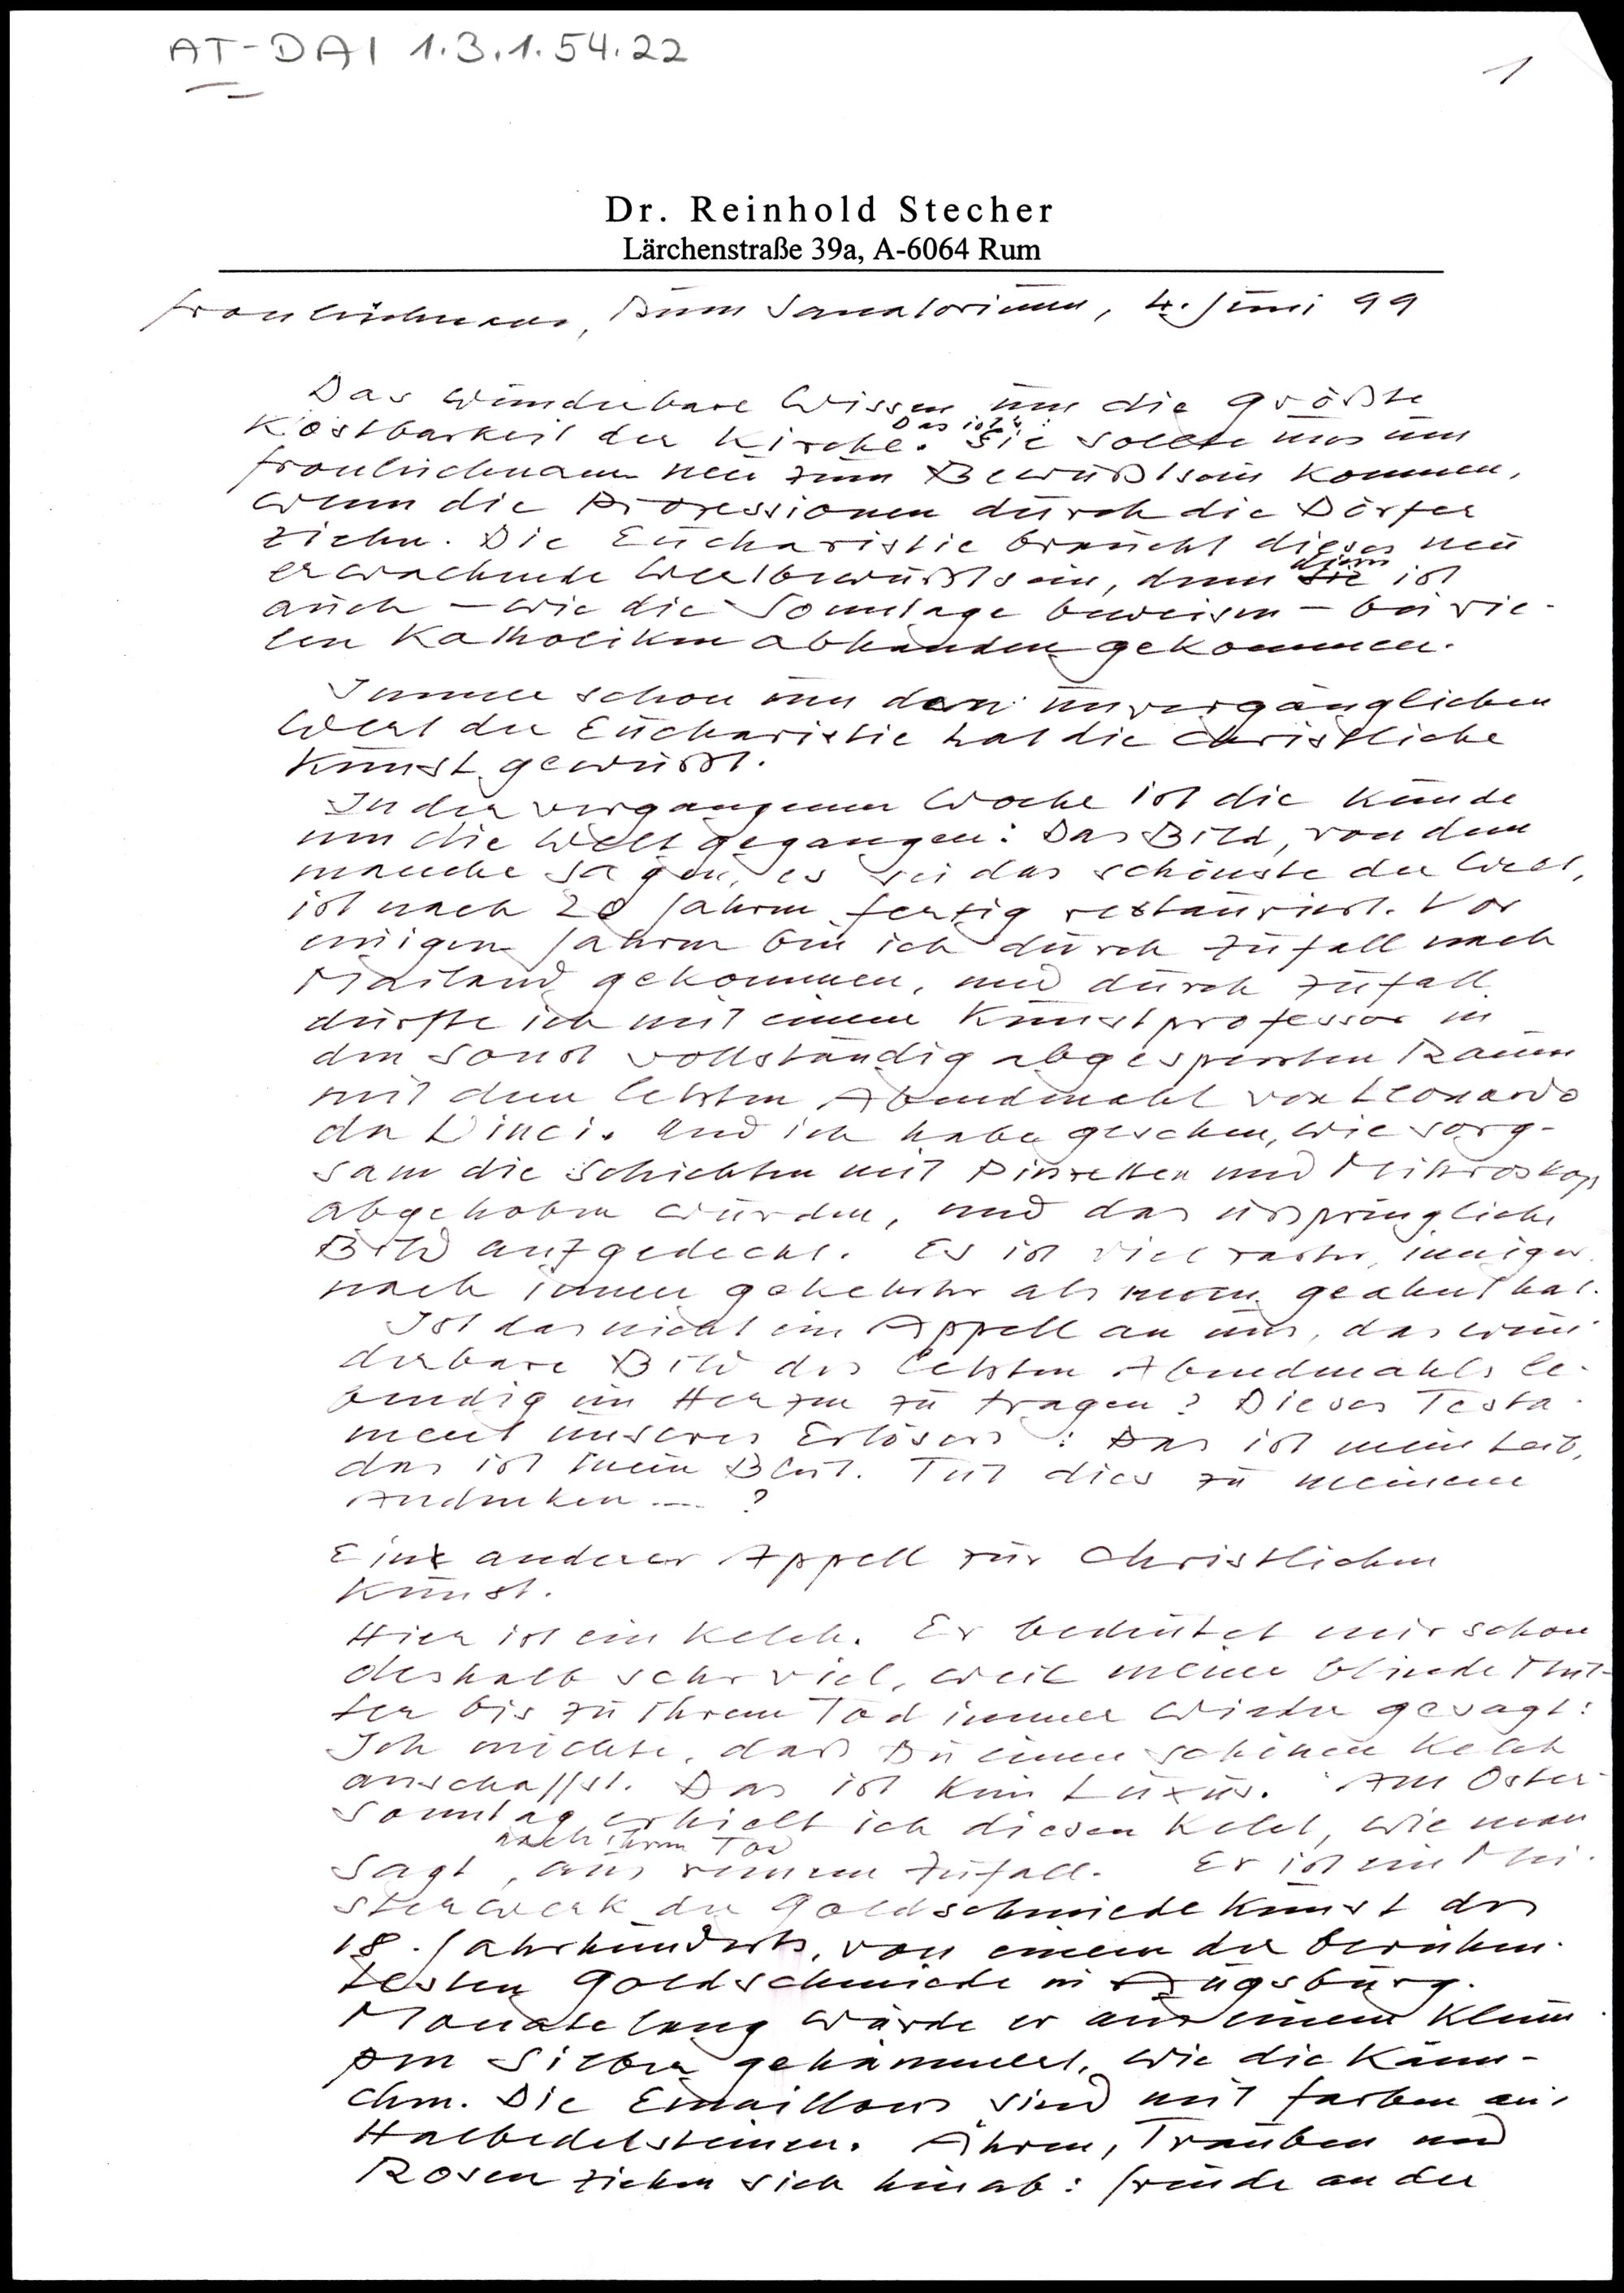 AT-DAI 1.3.1.54.22
1
Dr. Reinhold Stecher
Lärchenstraße 39a, A-6064 Rum
Fronleichnam, Rum Sanatorium, 4. Juni 99
Das wunderbare Wissen um die größte
Das ist es:
Kostbarkeit der Kirche. Sie sollte uns um
Fronleichnam neu zum Bewußtsein kommen,
wenn die Prozessionen durch die Dörfer
ziehn. Die Eucharistie braucht dieses neu
erwachende Wertbewußtsein, denn sie ist
auch – wie die Sonntage beweisen – bei vie-
len Katholiken abhanden gekommen.
Immer schon um den unvergänglichen
Wert der Eucharistie hat die christliche
Kunst gewußt.
In der vergangenen Woche ist die Kunde
um die Welt gegangen: Das Bild, von dem
manche sagen, es sei das schönste der Welt,
ist nach 20 Jahren fertig restauriert. Vor
einigen Jahren bin ich durch Zufall nach
Mailand gekommen, und durch Zufall
durfte ich mit einem Kunstprofessor in
den sonst vollständig abgesperrten Raum
mit dem letzten Abendmahl von Leonardo
da Vinci. Und ich habe gesehen, wie sorg-
sam die Schichten mit Pinzetten und Mikroskop
abgehoben wurden, und das ursprüngliche
Bild aufgedeckt. Es ist viel zarter, inniger
nach innen gekehrter als man geahnt hat.
Ist das nicht ein Appell an uns, das wun-
derbare Bild des letzten Abendmahls le-
bendig im Herzen zu tragen? Dieses Testa-
ment unseres Erlösers: Das ist mein Leib,
das ist mein Blut. Tut dies zu meinem
Andenken ---- ?
Ein anderer Appell zur christlichen
Kunst.
Hier ist ein Kelch. Er bedeutet mir schon
deshalb sehr viel, weil meine blinde Mut-
ter bis zu ihrem Tod immer wieder gesagt:
Ich möchte, daß Du einen schönen Kelch
anschaffst. Das ist kein Luxus. Am Oster-
sonntag erhielt ich diesen Kelch, wie man
nach ihrem Tod
sagt, aus reinem Zufall. Er ist ein Mei-
sterwerk der Goldschmiedekunst des
18. Jahrhunderts, von einem der berühm-
testen Goldschmiede in Augsburg.
Monatelang wurde er aus einem Klum-
pen Silber gehämmert, wie die Känn-
chen. Die Emaillons sind mit Farben aus
Halbedelsteinen. Ähren, Trauben und
Rosen ziehen sich hinab: Freude an der